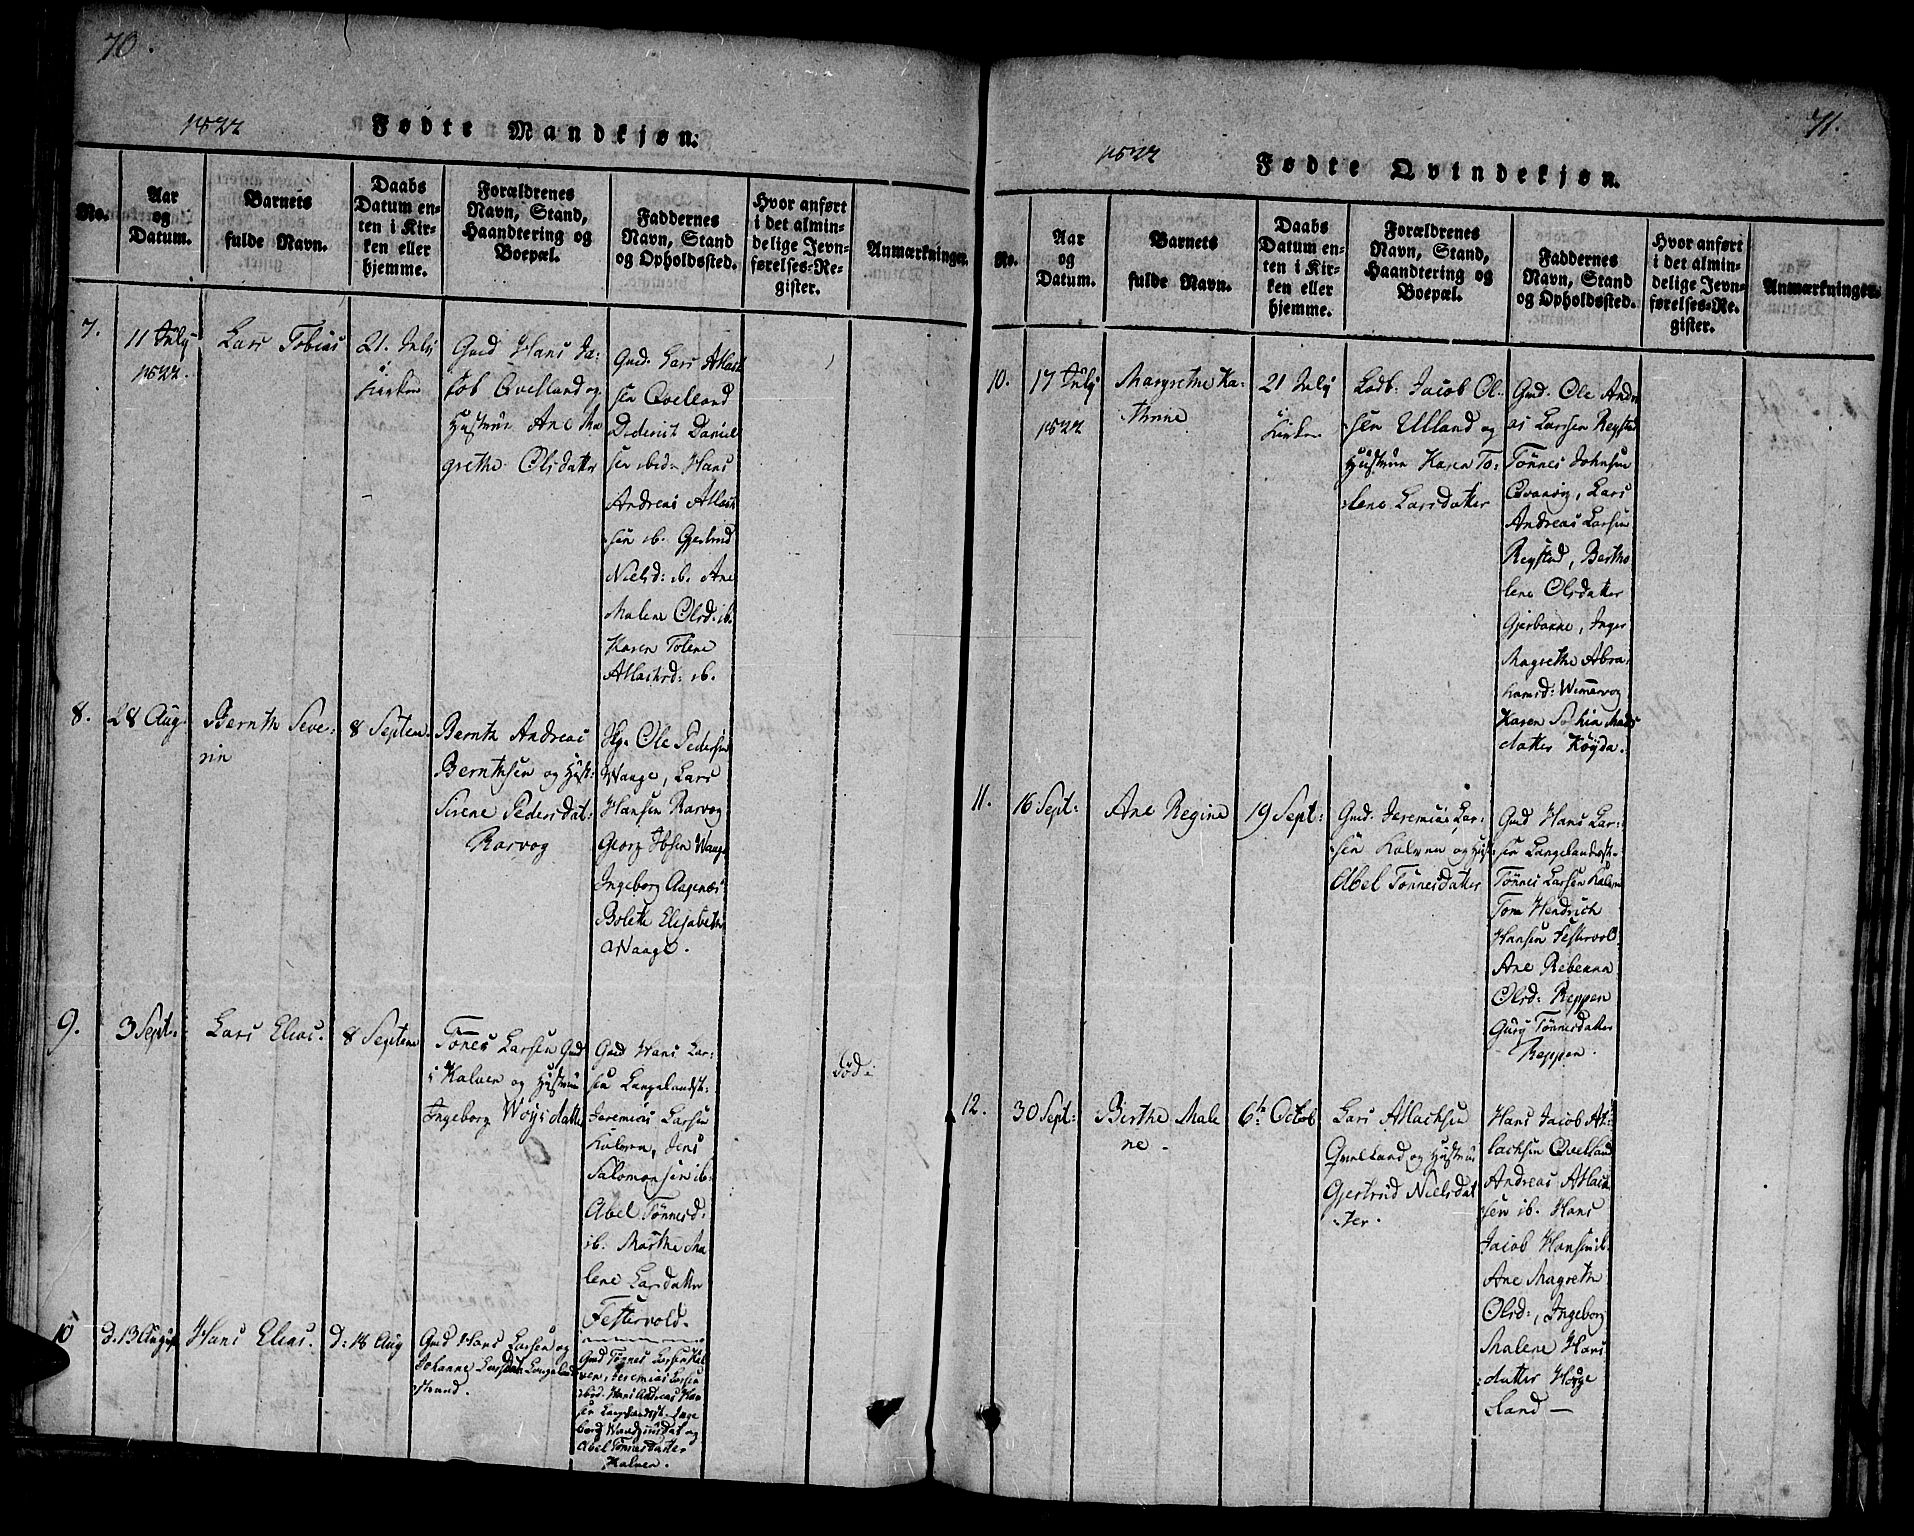 70.
1822
Fødte Mandkjøn.
No.
Aar
og
Datum.
Barnets
fulde Navn.
Daabs
Datum en-
ten i Kir-
ken eller
hjemme.
Forældrenes
Navn, Stand,
Haandtering og
Boepæl.
Faddernes
Navn, Stand
og Opholdssted.
Hvor anført
i det almin-
delige Jevn-
førelses-Re-
gister.
Anmærkninger.
7.
11 July
1822.
Lars Tobias
21. July
i
Kirken
Gmd Hans Ja-
kob Qvelland og
Hustrue Ane Ma
grethe Olsdatter
Gmd. Lars Atlak
sen Qvelland
Diderich Daniel
sen ibid: Hans
Andreas Atlak
sen ib. Gjertrud
Nielsd: ib. Ane
Malene Olsd: ib.
Karen Tolene
Atlachsd: ib.
8.
28 Aug.
Bernth Seve-
rin
8 Septem.
Bernth Andreas
Bernthsen og Hust:
Sirene Pedersdat
Rarvog
Hg. Ole Pedersen
Waage, Lars
Hansen Rarvog
Georg Ibsen Waage
Ingeborg Aagenæs
Bolette Elisabeth
Waage.
9.
3 Sept:
Lars Elias.
8 Septem
Tönes Larsen Gmd
i Kalven og Hustrue
Ingeborg Woysdatter
Gmd Hans Lar-
sen Langelandst:
Jeremias Larsen
Kalven, Jens
Salomonsen ib:
Abel Tönnesd:
ib. Marthe Ma
lene Larsdatter
Festervold.
död.
10
d. 13 August
Hans Elias.
d: 18 Aug
Gmd Hans Larsen og
Johanne Larsdatter Langeland
strand.
Gmd Tönnes Larsen Kal
ven, Jeremias Larsen
ibid. Hans Andreas Han
sen Langelandst. Inge
borg
Abel Tönnesdatter
Kalven.
71.
1822
Fødte Qvindekjøn.
No.
Aar
og
Datum.
Barnets
fulde Navn.
Daabs
Datum en-
ten i Kir-
ken eller
hjemme.
Forældrenes
Navn, Stand,
Haandtering og
Boepæl.
Faddernes
Navn, Stand
og Opholdssted.
Hvor anført
i det almin-
delige Jevn-
førelses-Re-
gister.
Anmærkninger.
10.
17 July
1822
Margrethe Ka-
thrine
21 July
i
Kirken
Lodb: Jacob Ol-
sen Ulland og
Hustrue Karen To-
lene Larsdatter
Gmd. Ole Andre
as Larsen Regstad
Tönnes Johnsen
Qvanvig, Lars
Andreas Larsen
Regstad, Bertho
lene Olsdatter
Gjerbakne, Inger
Magrethe Abra-
hamsd: Wimervog
Karen Sophia Mads
datter Höyda.
11.
16 Sept:
Ane Regine
19 Sept:
Gmd. Jeremias Lar-
sen Kalven og Hust:
Abel Tönnesdatter
Gmd Hans Lar-
sen Langelandsst-
Tönnes Larsen Kalven
Tore Hendrich
Hansen Festervol
Ane Rebekka
Olsd: Reppen
Gury Tönnesdatter
Reppen.
12.
30 Sept:
Berthe Male
ne -
6te Octob
Lars Atlachsen
Qvelland og Hustrue
Gjertrud Nielsdat
ter.
Hans Jacob At-
lachsen Qvelland
Andreas Atlach
sen ib. Hans
Jacob Hansen ib.
Ane Magrethe
Olsd:, Ingeborg
Malene Hans
datter Hörge
land —